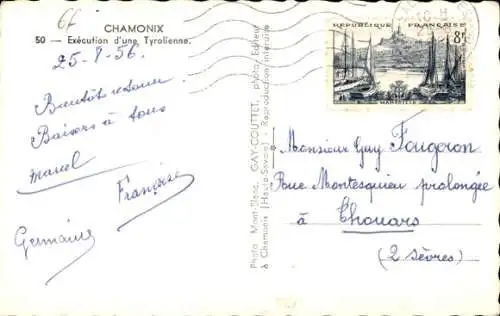 CHAMONIX
50 — Exécution d'une Tyrolienne.
25-8-56.
Bientôt retour
Baisers à tous
Marcel
Françoise
Germaine
Photo Mont-Blanc, GAY-COUTTET, photo-Editeur
à Chamonix (Haute-Savoie) - Reproduction interdite
REPUBLIQUE FRANÇAISE
8F
MARSEILLE
Monsieur Guy Fougeron
Rue Montesquieu prolongée
à Thouars
(2 Sèvres)